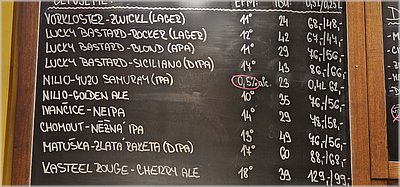 VORKLOSTER-ZWICKL (LAGER) 11° 24 68,-/48,-
LUCKY BASTARD-ROCKER (LAGER) 12° 42 67,-/47,-
LUCKY BASTARD-BLOND (APA) 11° 29 /56,-
LUCKY BASTARD-SICILIANO (DIPA) 17° 43 86,-/66,-
NILIO-YUZU SAMURAY (IPA) 0,5% alc. 23 0,4L 62,-
NILIO-GOLDEN ALE 10° 35 /56,-
IVANČICE-NEIPA 14° 29 /58,-
CHOMOUT-NĚŽNÁ IPA 13° 49 /56,-
MATUŠKA-ZLATÁ RAKETA (DIPA) 17° 60 88,-/68,-
KASTEEL ROUGE-CHERRY ALE 18° 39 129,-/99,-